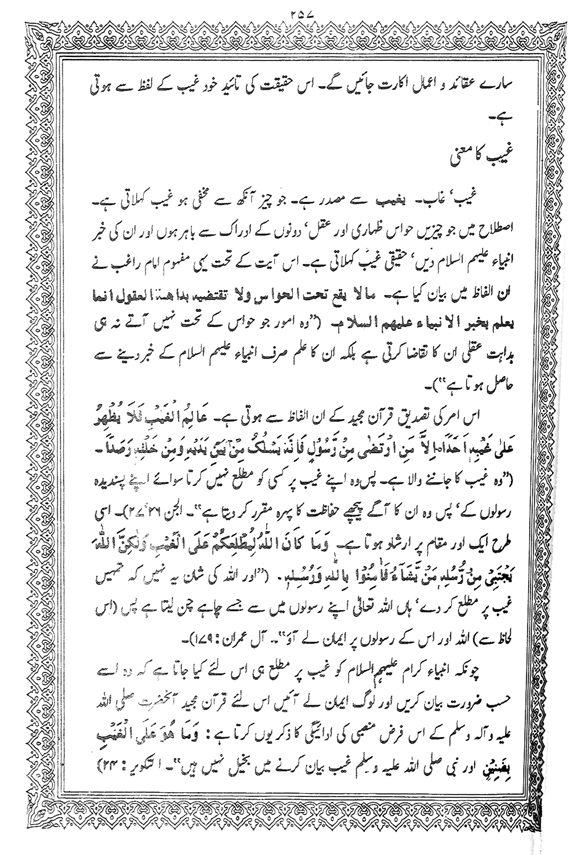 ۲۵۷
سارے عقائد و اعمال اکارت جائیں گے۔ اس حقیقت کی تائید خود غیب کے لفظ سے ہوتی
ہے۔
غیب کا معنی
غیب‘ غاب۔ یغیب سے مصدر ہے۔ جو چیز آنکھ سے مخفی ہو غیب کہلاتی ہے۔
اصطلاح میں جو چیزیں حواس ظہاری اور عقل‘ دونوں کے ادراک سے باہر ہوں اور ان کی خبر
انبیاء علیہم السلام دیں‘ حقیقی غیب کہلاتی ہے۔ اس آیت کے تحت یہی مفہوم امام راغب نے
ان الفاظ میں بیان کیا ہے۔ مالا یقع تحت الحواس ولا تقتضیہ بداھة العقول انما
یعلم بخبر الانبیاء علیھم السلام۔ (”وہ امور جو حواس کے تحت نہیں آتے نہ ہی
بداہت عقلی ان کا تقاضا کرتی ہے بلکہ ان کا علم صرف انبیاء علیہم السلام کے خبر دینے سے
حاصل ہوتا ہے“)۔
اس امر کی تصدیق قرآن مجید کے ان الفاظ سے ہوتی ہے۔ عَالِمُ الْغَیْبِ فَلَا یُظْهِرُ
عَلٰی غَیْبِهٖ اَحَدًا۔ اِلَّا مَنِ ارْتَضٰی مِنْ رَّسُوْلٍ فَاِنَّهٗ یَسْلُكُ مِنْۢ بَیْنِ یَدَیْهِ وَمِنْ خَلْفِهٖ رَصَدًا۔
(”وہ غیب کا جاننے والا ہے۔ پس وہ اپنے غیب پر کسی کو مطلع نہیں کرتا سوائے اپنے پسندیدہ
رسولوں کے‘ پس وہ ان کا آگے پیچھے حفاظت کا پہرہ مقرر کر دیتا ہے“۔ الجن ۲۶‘۲۷)۔ اسی
طرح ایک اور مقام پر ارشاد ہوتا ہے۔ وَمَا كَانَ اللّٰهُ لِیُطْلِعَكُمْ عَلَی الْغَیْبِ وَلٰكِنَّ اللّٰهَ
یَجْتَبِیْ مِنْ رُّسُلِهٖ مَنْ یَّشَآءُ فَاٰمِنُوْا بِاللّٰهِ وَرُسُلِهٖ۔ (”اور اللہ کی شان یہ نہیں کہ تمہیں
غیب پر مطلع کر دے‘ ہاں اللہ تعالٰی اپنے رسولوں میں سے جسے چاہے چن لیتا ہے پس (اس
لحاظ سے) اللہ اور اس کے رسولوں پر ایمان لے آؤ“۔۔ آل عمران : ۱۷۹)۔
چونکہ انبیاء کرام علیہم السلام کو غیب پر مطلع ہی اس لئے کیا جاتا ہے کہ وہ اسے
حسب ضرورت بیان کریں اور لوگ ایمان لے آئیں اس لئے قرآن مجید آنحضرت صلی اللہ
علیہ وآلہ وسلم کے اس فرض منصبی کی ادائیگی کا ذکر یوں کرتا ہے : وَمَا هُوَ عَلَی الْغَیْبِ
بِضَنِیْنٍ اور نبی صلی اللہ علیہ وسلم غیب بیان کرنے میں بخیل نہیں ہیں“۔ التکویر : ۲۴)